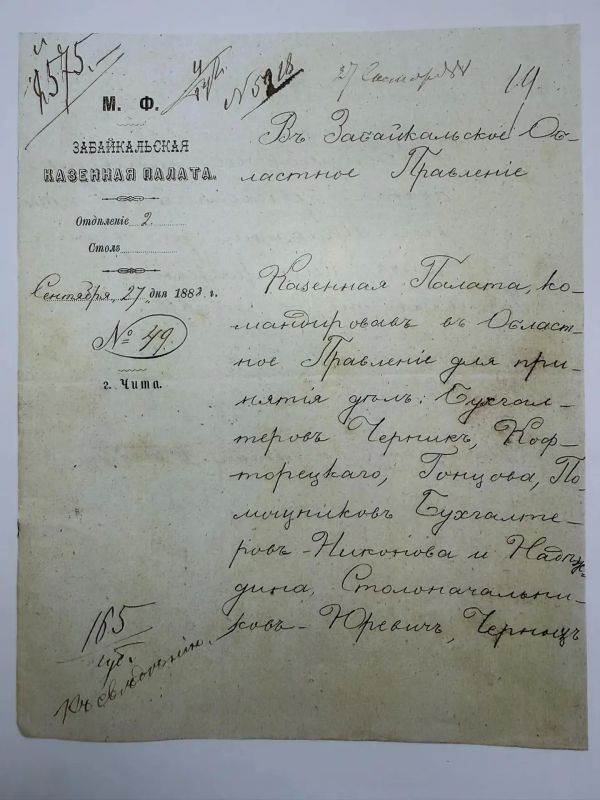 4575.
№ 5218
27 Сентября
19
М. Ф.
ЗАБАЙКАЛЬСКАЯ
КАЗЕННАЯ ПАЛАТА.
Отдѣленіе 2.
Столъ
Сентября, 27, дня 1883 г.
№ 49.
г. Чита.
Въ Забайкальское Об-
ластное Правленіе
Казенная Палата, ко-
мандировавъ въ Област-
ное Правленіе для при-
нятія дѣлъ: Бухгал-
теровъ Черникъ, Коф-
торецкаго, Гонцова, По-
мощниковъ Бухгалте-
ровъ - Никонова и Надѣж-
дина, Столоначальни-
ковъ - Юревичъ, Черныхъ
165
Къ свѣдѣнію.